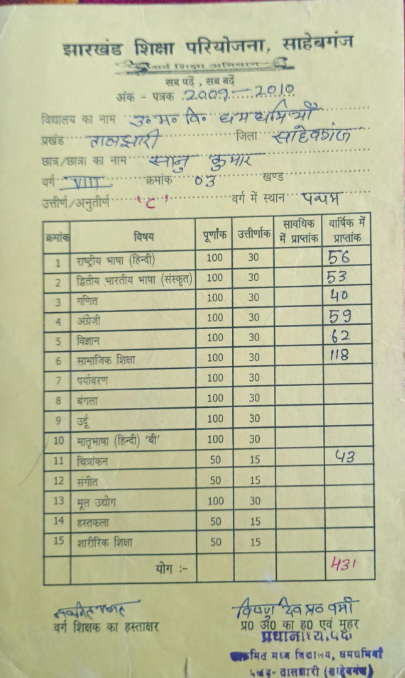 झारखंड शिक्षा परियोजना, साहेबगंज
सर्व शिक्षा अभियान
सब पढ़ें, सब बढ़ें
अंक - पत्रक 2009-2010
विद्यालय का नाम उ० म० वि० धमधमियाँ
प्रखंड तालझारी जिला साहेबगंज
छात्र/छात्रा का नाम सानु कुमार
वर्ग VIII क्रमांक 03 खण्ड
उत्तीर्ण/अनुतीर्ण 'C' वर्ग में स्थान पंचम
क्रमांक विषय पूर्णांक उत्तीर्णांक सावधिक में प्राप्तांक वार्षिक में प्राप्तांक
1 राष्ट्रीय भाषा (हिन्दी) 100 30 56
2 द्वितीय भारतीय भाषा (संस्कृत) 100 30 53
3 गणित 100 30 40
4 अंग्रेजी 100 30 59
5 विज्ञान 100 30 62
6 सामाजिक शिक्षा 100 30 118
7 पर्यावरण 100 30
8 बंगला 100 30
9 उर्दू 100 30
10 मातृभाषा (हिन्दी) 'बी' 100 30
11 चित्रांकन 50 15 43
12 संगीत 50 15
13 मूल उद्योग 100 30
14 हस्तकला 50 15
15 शारीरिक शिक्षा 50 15
योग :- 431
विष्णु देव प्र० वर्मा
वर्ग शिक्षक का हस्ताक्षर प्र० अ० का ह० एवं मुहर
प्रधानाध्यापक
मध्य विद्यालय, धमधमियाँ
तालझारी (साहेबगंज)